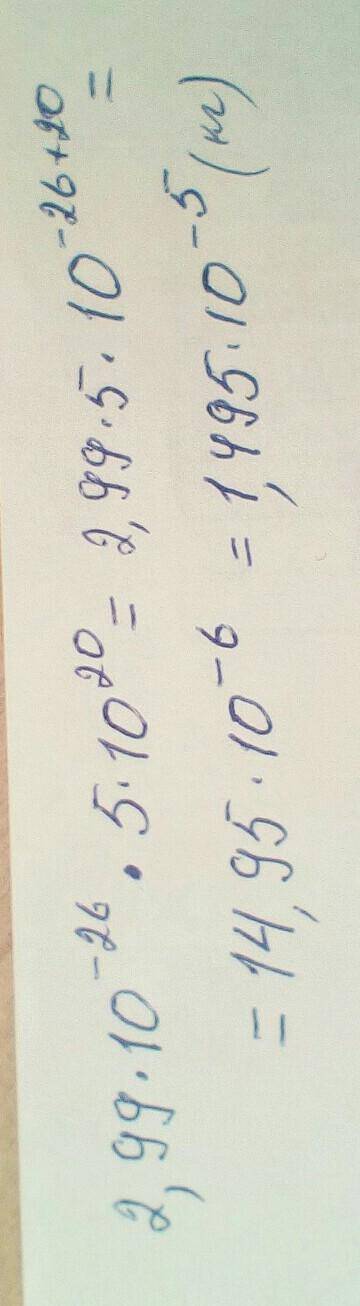 2,99·10⁻²⁶ · 5·10²⁰ = 2,99·5·10⁻²⁶⁺²⁰ =
= 14,95·10⁻⁶ = 1,495·10⁻⁵ (кг)